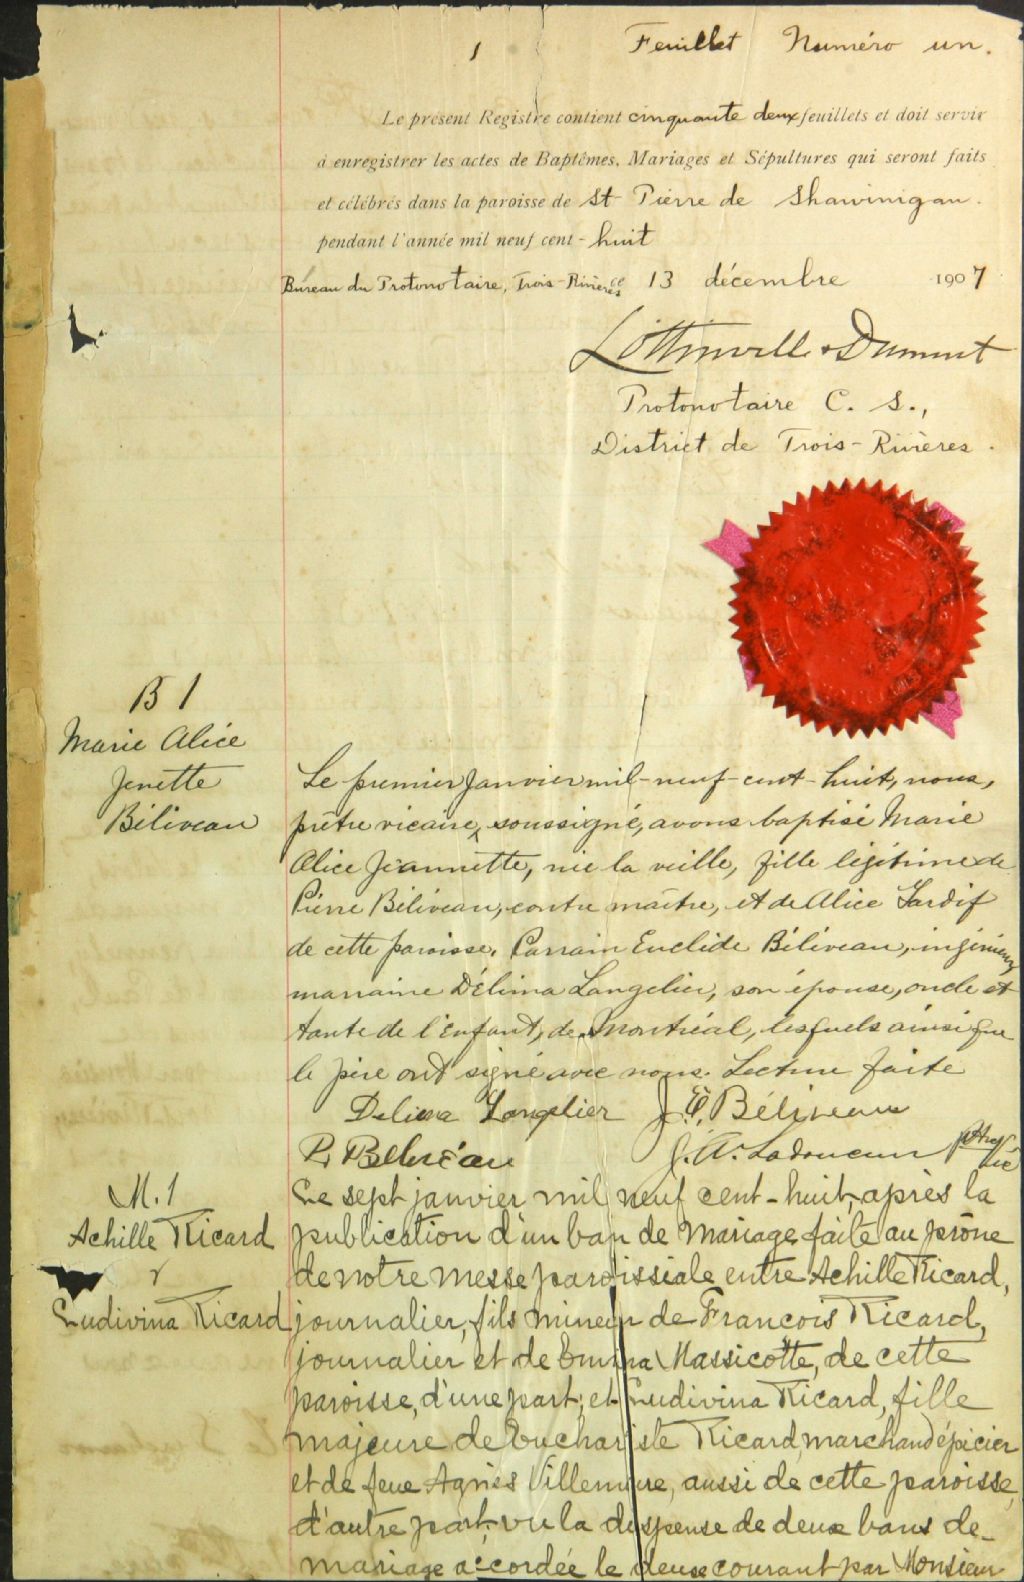 1 Feuillet Numéro un.
Le présent Registre contient cinquante deux feuillets et doit servir
à enregistrer les actes de Baptêmes, Mariages et Sépultures qui seront faits
et célébrés dans la paroisse de St Pierre de Shawinigan.
pendant l'année mil neuf cent-huit
Bureau du Protonotaire, Trois-Rivières ce 13 décembre 1907
Lottinville & Dumont
Protonotaire C. S.,
District de Trois-Rivières.
B 1
Marie Alice
Jenette
Béliveau
Le premier Janvier mil-neuf-cent-huit, nous,
prêtre vicaire, soussigné, avons baptisé Marie
Alice Jeannette, née la veille, fille légitime de
Pierre Béliveau, contre maître, et de Alice Tardif
de cette paroisse. Parrain Euclide Béliveau, ingénieur
marraine Délima Langelier, son épouse, oncle et
tante de l'Enfant, de Montréal, lesquels ainsi que
le père ont signé avec nous. Lecture faite
Delima Langelier J. E. Béliveau
P. Béliveau J. A. Ladouceur Ptre Vic
M. 1
Achille Ricard
&
Ludivina Ricard
Le sept janvier mil neuf cent-huit, après la
publication d'un ban de mariage faite au prône
de notre messe paroissiale entre Achille Ricard,
journalier, fils mineur de François Ricard,
journalier et de Emma Massicotte, de cette
paroisse, d'une part; et Ludivina Ricard, fille
majeure de Euchariste Ricard, marchand épicier
et de feue Agnès Villemure, aussi de cette paroisse,
d'autre part, vu la dispense de deux bans de
mariage accordée le deux courant par Monsieur